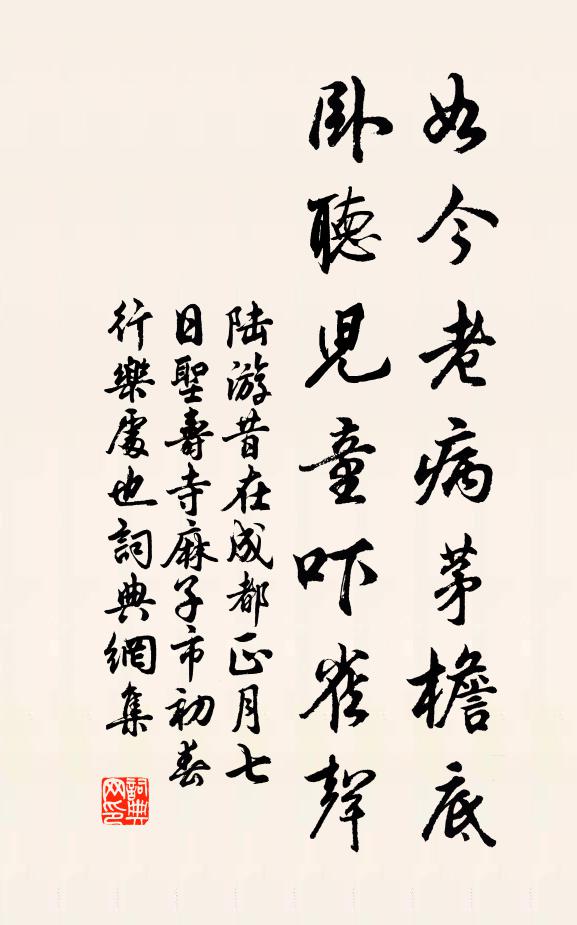 如今老病茅檐底
臥聽兒童吓雀聲
陆游昔在成都正月七
日聖壽寺麻子市初春
行樂處也詞典網集
詞典
网印